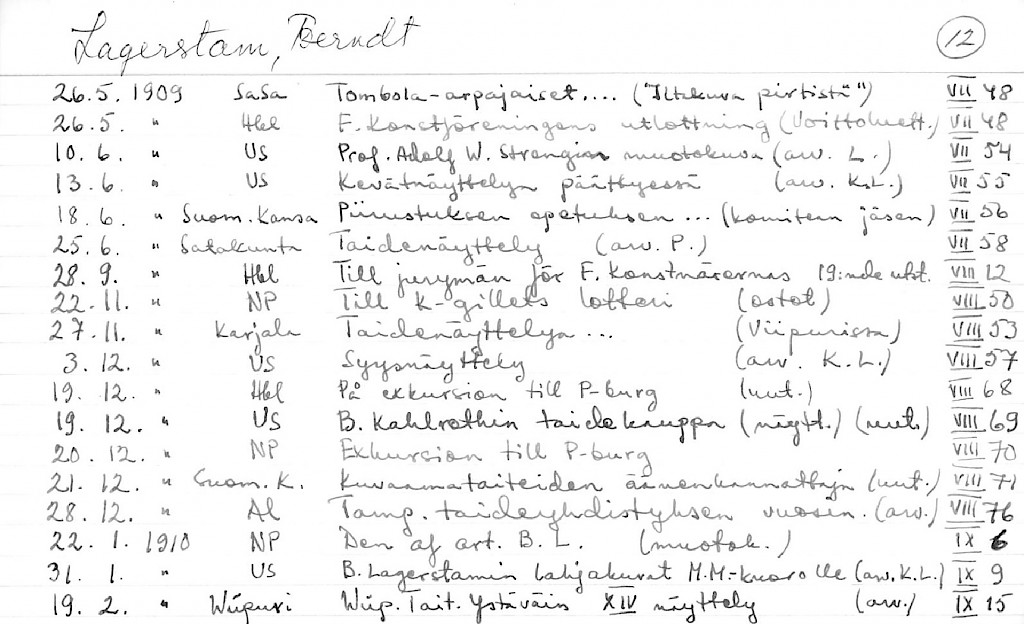 Lagerstam, Berndt 12
26.5. 1909 SaSa Tombola-arpajaiset.... ("Iltakuva pirtistä") VII 48
26.5. " Hbl F. Konstföreningens utlottning (Voittoluett.) VII 48
10.6. " US Prof. Adolf W. Strengin muotokuva (arv. L.) VII 54
13.6. " US Kevätnäyttelyn päättyessä (arv. K.L.) VII 55
18.6. " Suom. Kansa Piirustuksen opetuksen ... (komitean jäsen) VII 56
25.6. " Satakunta Taidenäyttely (arv. P.) VII 58
28.9. " Hbl Till jurymän för F. Konstnärernas 19:nde utst. VIII 12
22.11. " NP Till K-gillets lotteri (ostot) VIII 50
27.11. " Karjala Taidenäyttelyn ... (Viipurissa) VIII 53
3.12. " US Syysnäyttely (arv. K.L.) VIII 57
19.12. " Hbl På exkursion till P-burg (uut.) VIII 68
19.12. " US B. Kahlrothin taidekauppa (näytt.) (uut.) VIII 69
20.12. " NP Exkursion till P-burg VIII 70
21.12. " Suom. K. Kuvaamataiteiden äänenkannattaja (uut.) VIII 71
28.12. " Al Tamp. taideyhdistyksen vuosin. (arv.) VIII 76
22.1. 1910 NP Den af art. B. L. (muotok.) IX 6
31.1. " US B. Lagerstamin lahjakuvat M.M-kuorolle (arv. K.L.) IX 9
19.2. " Wiipuri Wiip. Tait. Ystäväin XIV näyttely (arv.) IX 15